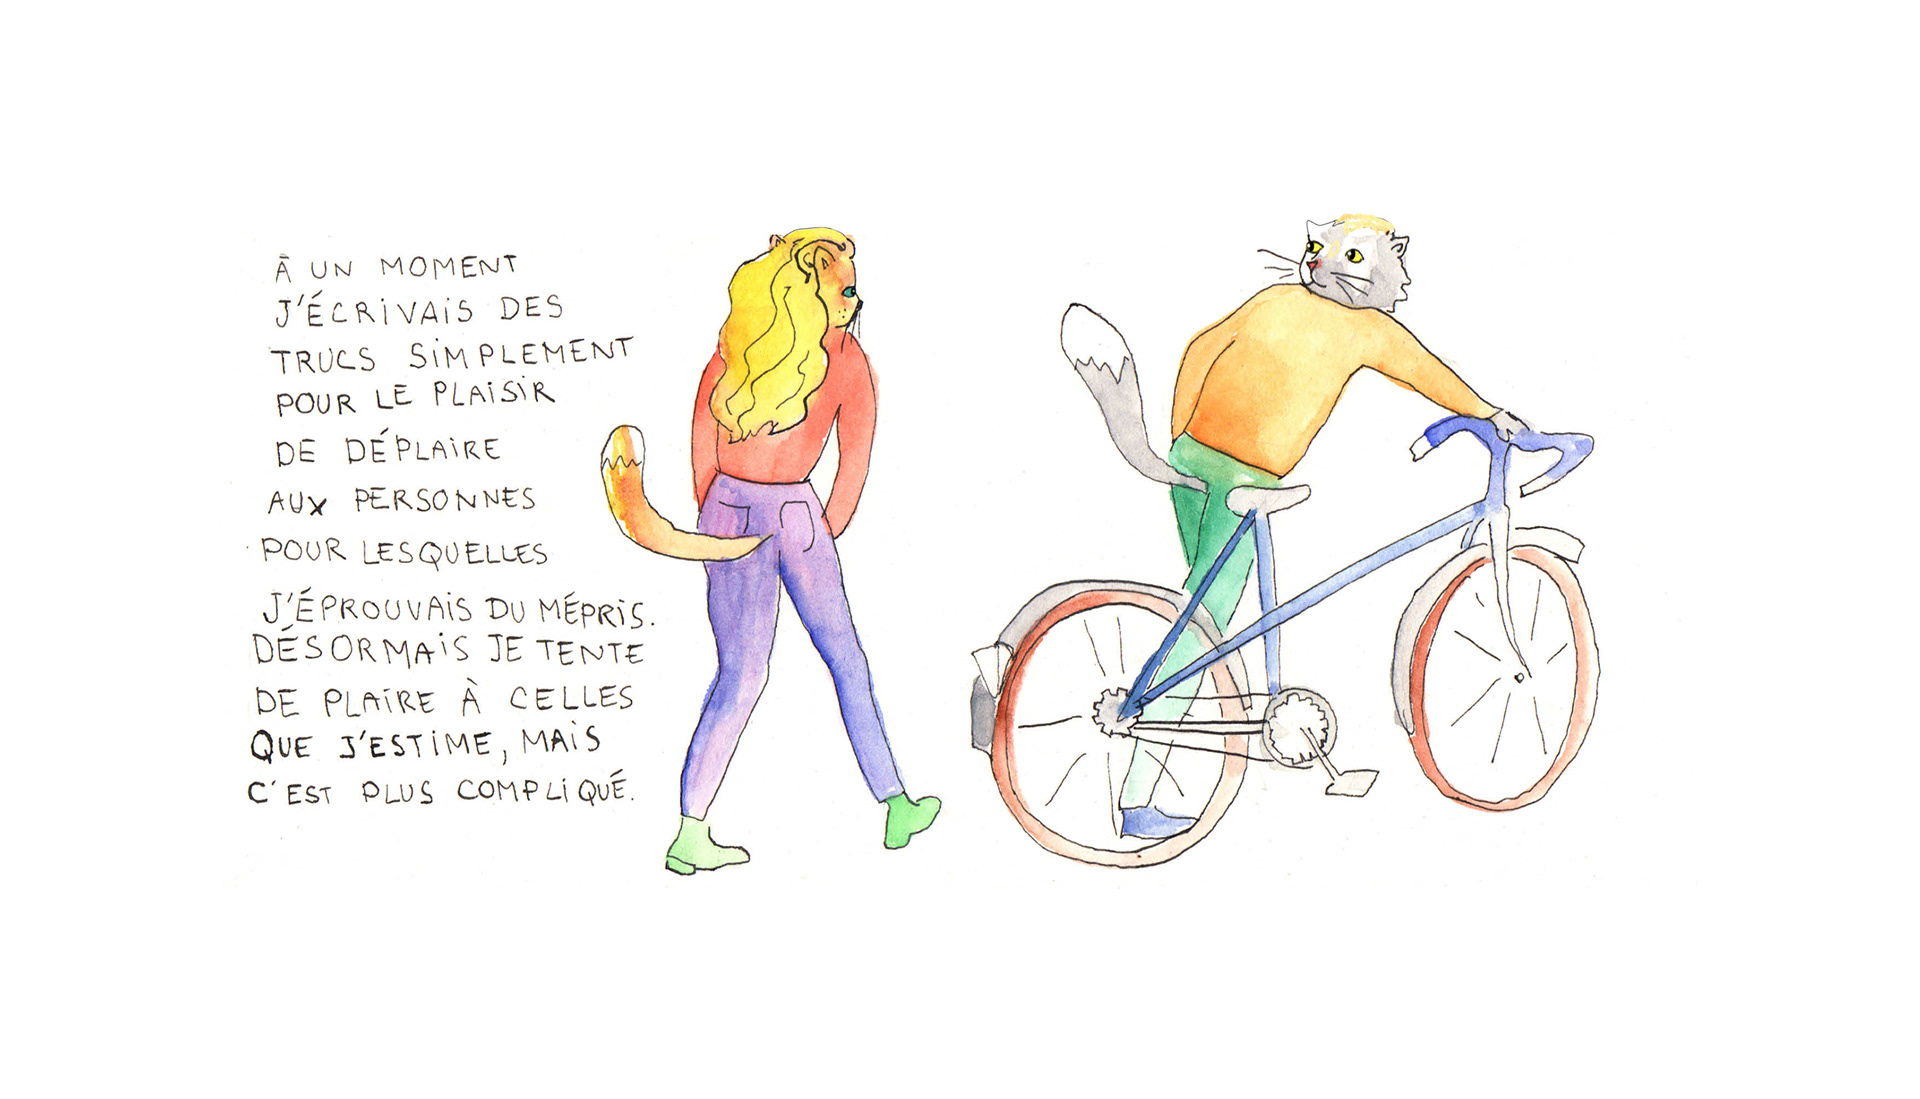 À UN MOMENT
J'ÉCRIVAIS DES
TRUCS SIMPLEMENT
POUR LE PLAISIR
DE DÉPLAIRE
AUX PERSONNES
POUR LESQUELLES
J'ÉPROUVAIS DU MÉPRIS.
DÉSORMAIS JE TENTE
DE PLAIRE À CELLES
QUE J'ESTIME, MAIS
C'EST PLUS COMPLIQUÉ.